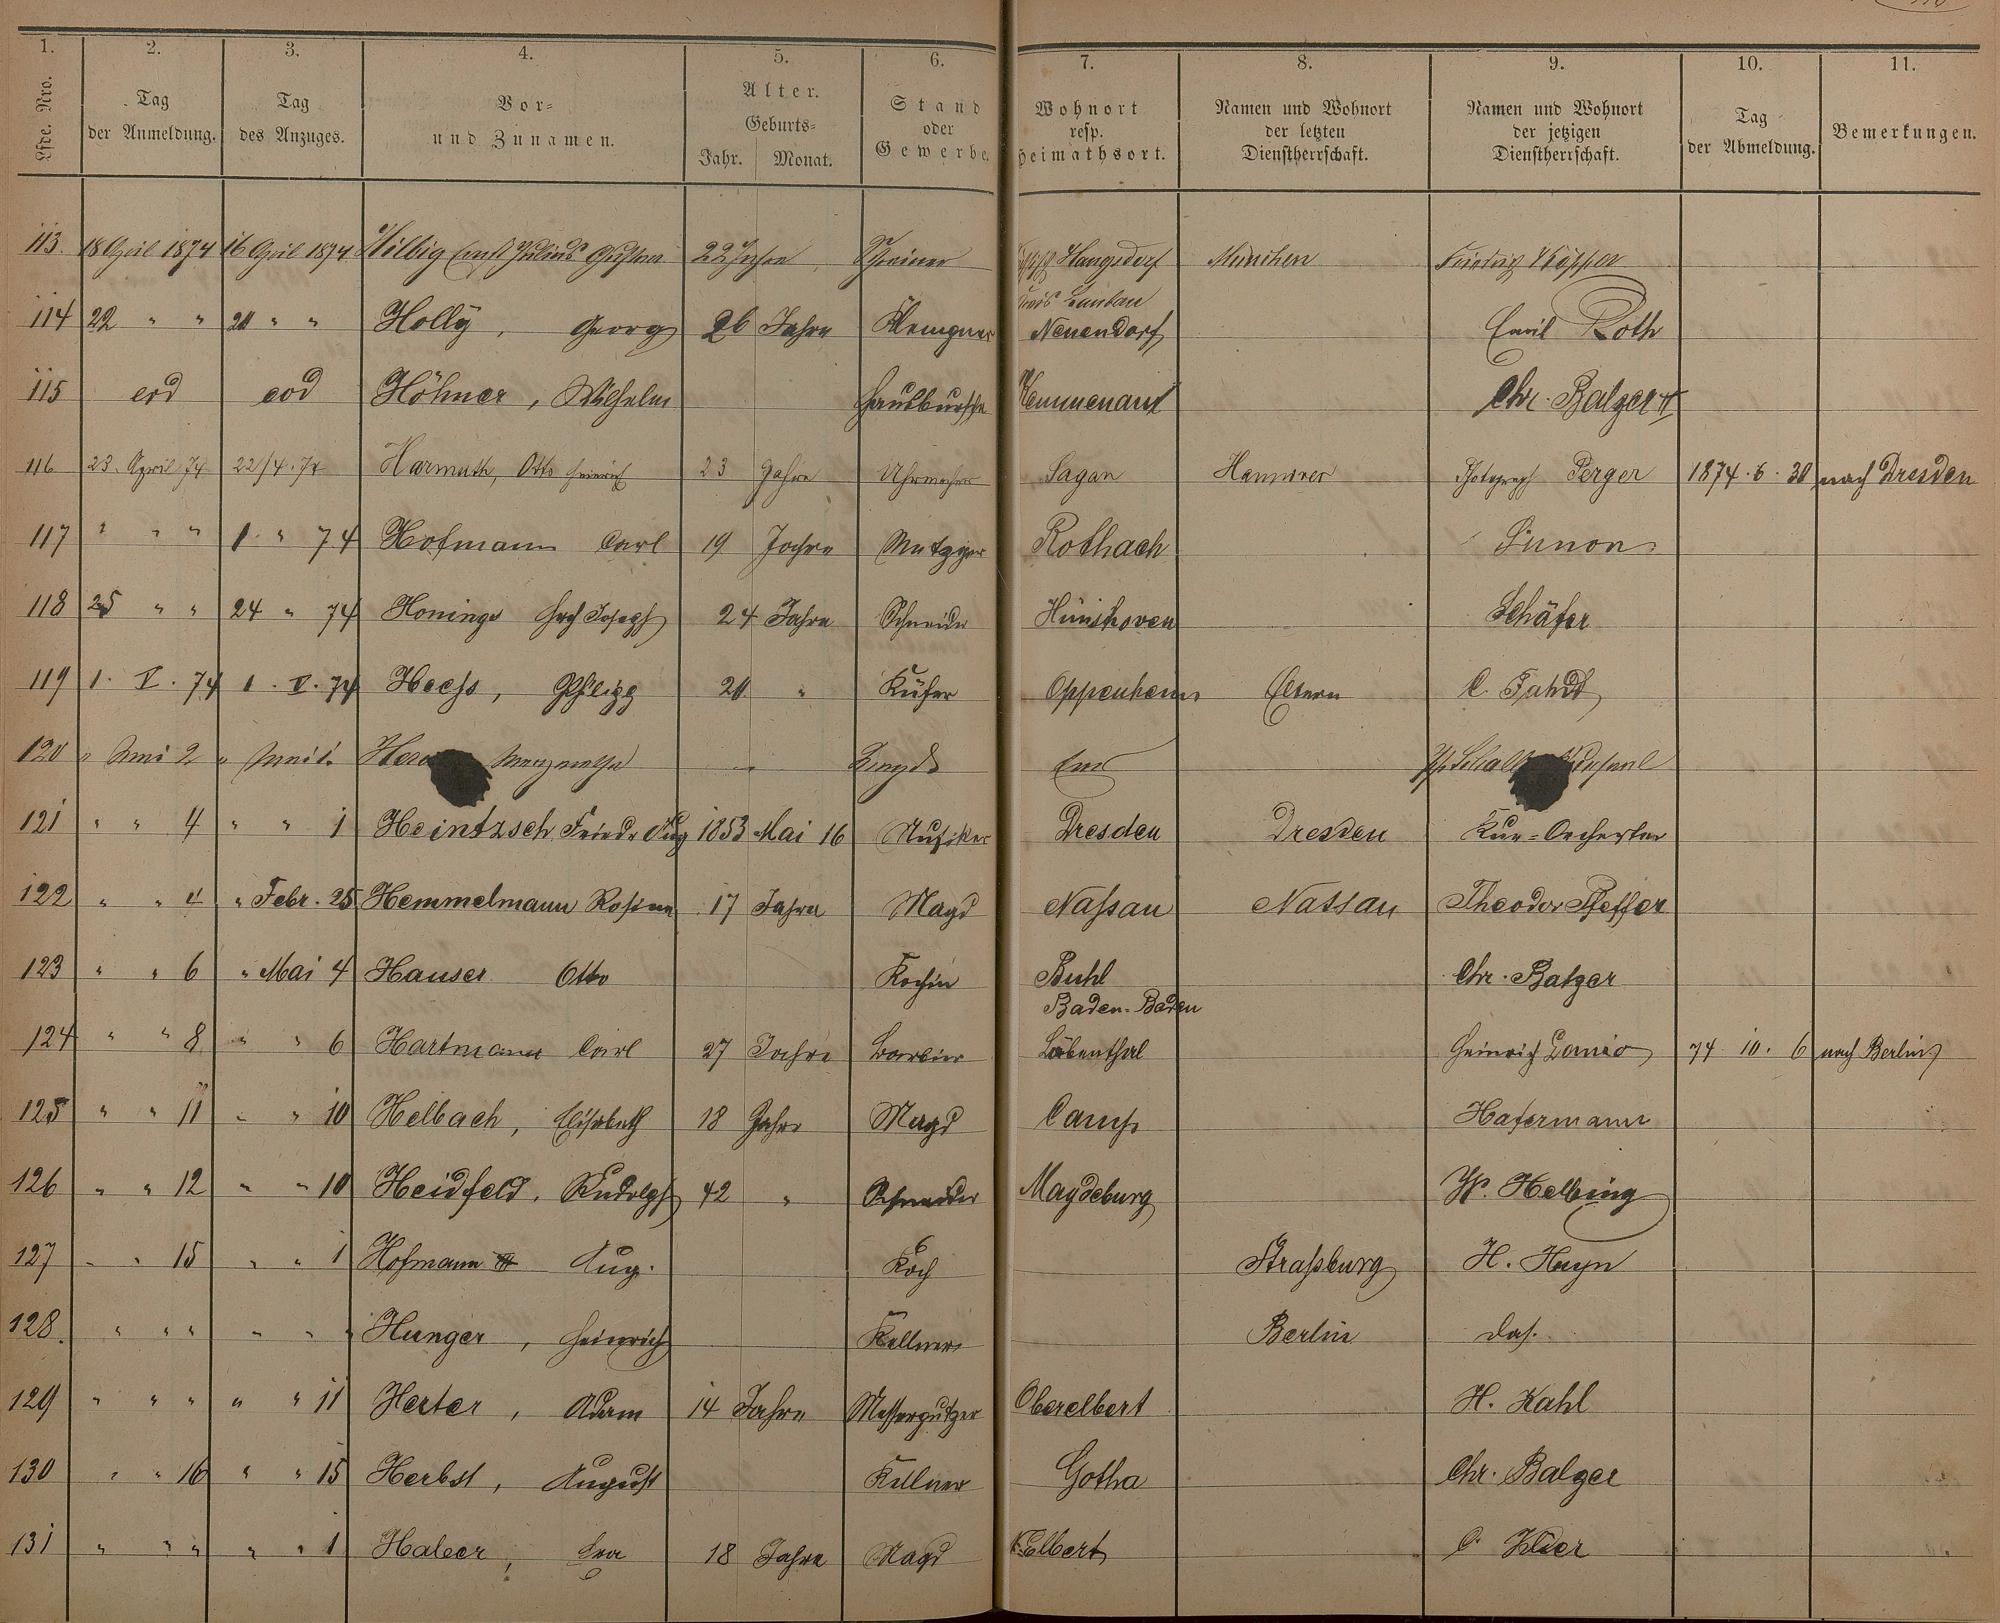 1. 2. 3. 4. 5. 6. 7. 8. 9. 10. 11.
Lfde. Nro. Tag der Anmeldung. Tag des Anzuges. Vor- und Zunamen. Alter. Geburts- Jahr. Monat. Stand oder Gewerbe. Wohnort resp. Heimathsort. Namen und Wohnort der letzten Dienstherrschaft. Namen und Wohnort der jetzigen Dienstherrschaft. Tag der Abmeldung. Bemerkungen.
113. 18 April 1874 16 April 1874 Ernst Julius Gustav 22 Jahre Schreiner Langsdorf München
Kreis Lauban
114 22 " " 20 " " Holly, Georg 26 Jahre Klempner Neuendorf Emil Roth
115 eod eod Höhner, Wilhelm Hausbursche Chr. Balzer
116 23. April 74 22/4.74 Harmuth, Otto Heinrich 23 Jahre Uhrmacher Sagan Hannover Photograph Perger 1874.6.30 nach Dresden
117 " " " 1. " 74 Hofmann Carl 19 Jahre Metzger Rothach Simon
118 25 " " 24 " 74 Honings Joseph 24 Jahre Schneider Hünshoven Schäfer
119 1. V. 74 1. V. 74 Hecss, Philipp 20 " Küfer Oppenheim Eltern C.
120 " Mai 2 " Mai 1. Ems
121 " " 4 " " 1 Heintzsch Friedr Aug 1853 Mai 16 Musiker Dresden Dresden Kur-Orchester
122 " " 4 " Febr. 25 Hemmelmann Rosina 17 Jahre Magd Nassau Nassau Theodor Pfeffer
123 " " 6 " Mai 4 Hauser Otto Kochin Buhl Chr. Balzer
Baden-Baden
124 " " 8 " " 6 Hartmann Carl 27 Jahre Barbier Heinrich 74 10. 6 nach Berlin
125 " " 11 " " 10 Helbach, Elisabeth 18 Jahre Magd Camp Hafermann
126 " " 12 " " 10 Heidfeld, Rudolph 42 " Schneider Magdeburg W. Helbing
127 " " 15 " " 1 Hofmann Aug. Koch Strassburg H. Heyn
128. " " " " " " Hunger, Heinrich Kellner Berlin das.
129 " " " " " 11 Herter, Adam 14 Jahre Messerputzer Oberelbert H. Kahl
130 " " 16 " " 15 Herbst, August Kellner Gotha Chr. Balzer
131 " " " " " 1 Eva 18 Jahre Magd Elbert